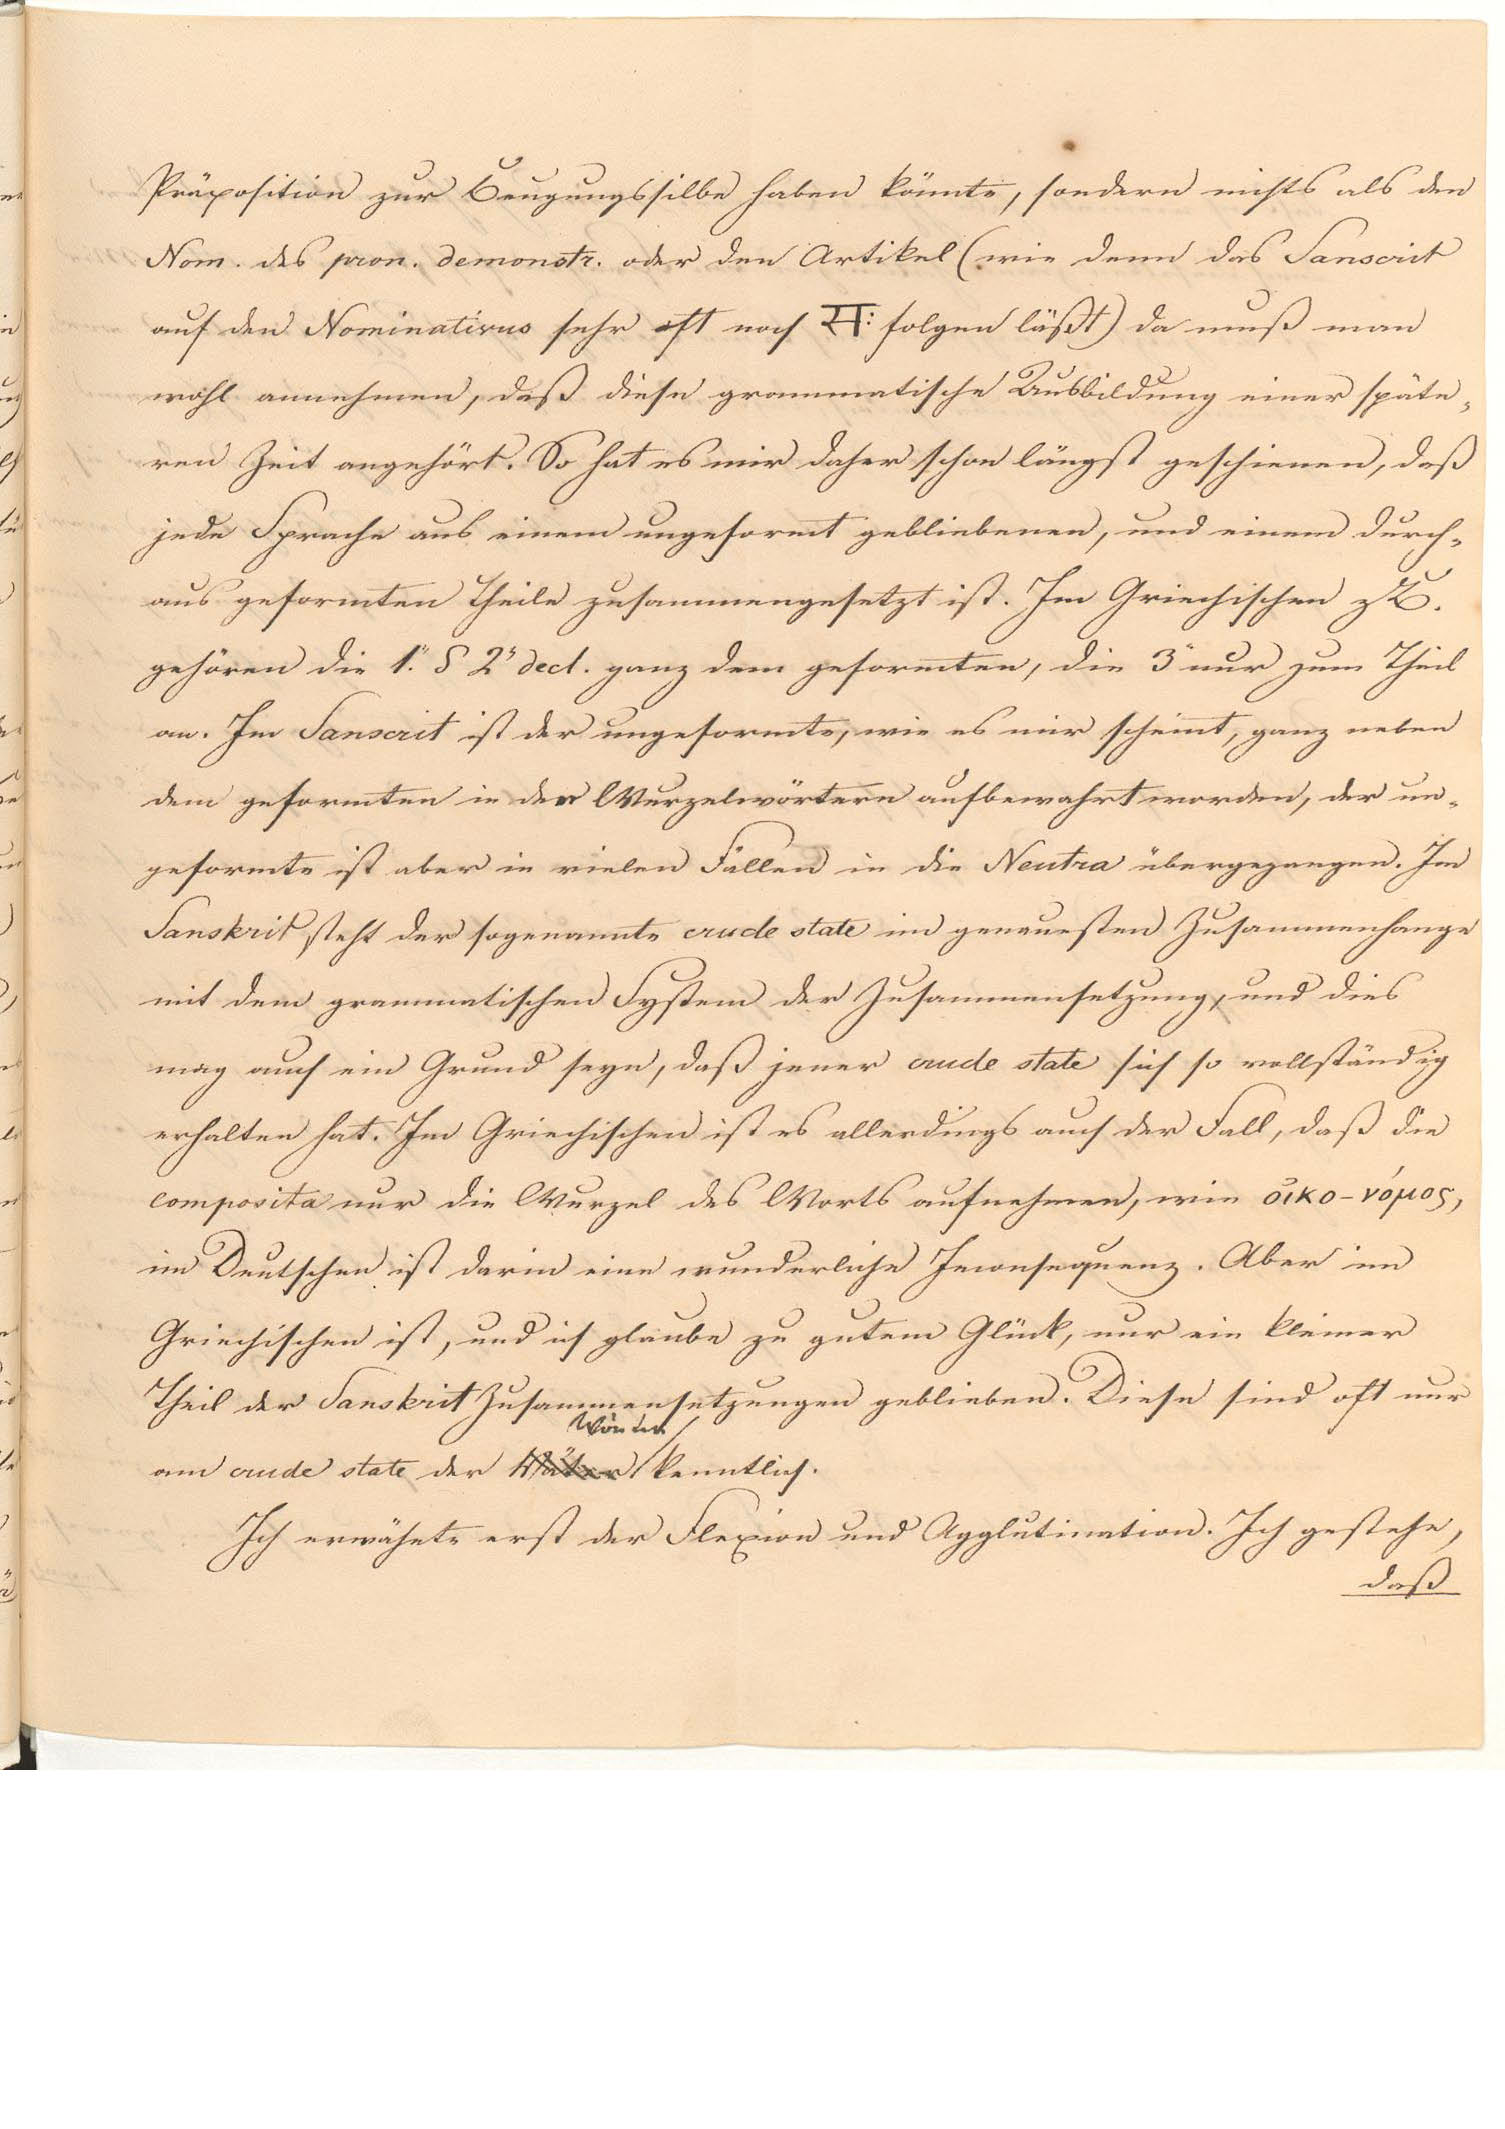 Präposition zur Beugungssilbe haben könnte, sondern nichts als den
Nom. des pron. demonstr. oder den Artikel (wie denn das Sanscrit
auf den Nominativus sehr oft noch सः folgen läßt) da muß man
wohl annehmen, daß diese grammatische Ausbildung einer späte-
ren Zeit angehört. So hat es mir daher schon längst geschienen, daß
jede Sprache aus einem ungeformt gebliebenen, und einem durch-
aus geformten Theile zusammengesetzt ist. Im Griechischen z. B.
gehören die 1. & 2 decl. ganz dem geformten, die 3 nur zum Theil
an. Im Sanscrit ist der ungeformte, wie es mir scheint, ganz neben
dem geformten in den Wurzelwörtern aufbewahrt worden, der un-
geformte ist aber in vielen Fällen in die Neutra übergegangen. Im
Sanskrit steht der sogenannte crude state im genauesten Zusammenhange
mit dem grammatischen System der Zusammensetzung, und dies
mag auch ein Grund seyn, daß jener crude state sich so vollständig
erhalten hat. Im Griechischen ist es allerdings auch der Fall, daß die
composita nur die Wurzel des Worts aufnehmen, wie οἰκο-νόμος,
im Deutschen ist darin eine wunderliche Inconsequenz. Aber im
Griechischen ist, und ich glaube zu gutem Glück, nur ein kleiner
Theil der Sanskrit Zusammensetzungen geblieben. Diese sind oft nur
am crude state der Wörter kenntlich.
Ich erwähnte erst der Flexion und Agglutination. Ich gestehe,
daß